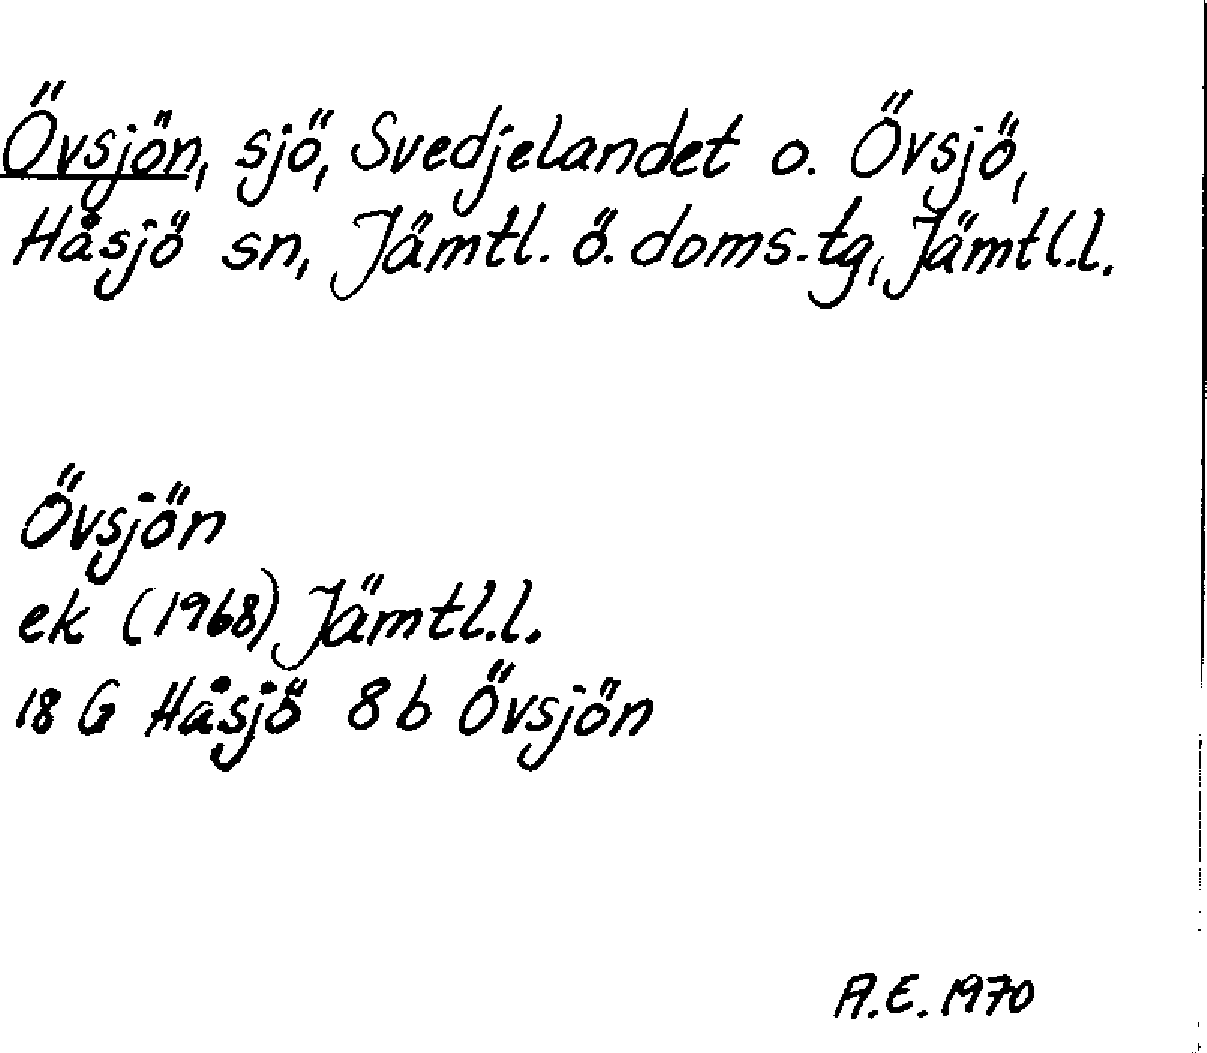 Övsjön, sjö, Svedjelandet o. Övsjö,
Håsjö sn, Jämtl. ö. doms.tg, Jämtl.l.
Övsjön
ek (1968) Jämtl.l.
18 G Håsjö 8b Övsjön
A.E. 1970